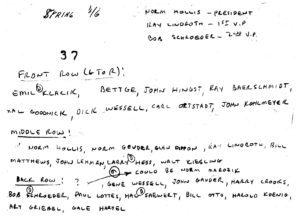 SPRING 3/6
NORM HOLLIS - PRESIDENT
RAY LINDROTH - 1ST V.P.
BOB SCHROEDER - 2ND V.P.
37
FRONT ROW (L TO R):
EMIL KLACIK, BETTGE, JOHN HINGST, RAY BAERSCHMIDT,
HAL GOODNICK, DICK WESSELL, CARL ORTSTADT, JOHN KOHLMEYER
MIDDLE ROW:
NORM HOLLIS, NORM GEUDER, GLEN DIXON, RAY LINDROTH, BILL
MATTHEWS, JOHN LEHMAN, LARRY HESS, WALT KIESLING
COULD BE NORM
BACK ROW: ? , GENE WESSELL, JOHN GAUGER, HARRY CROOKS,
BOB SCHROEDER, PAUL LOTTES, SAEWERT, BILL OTTO, HAROLD KOENIG,
ART GRIEBEL, GALE HARDEL